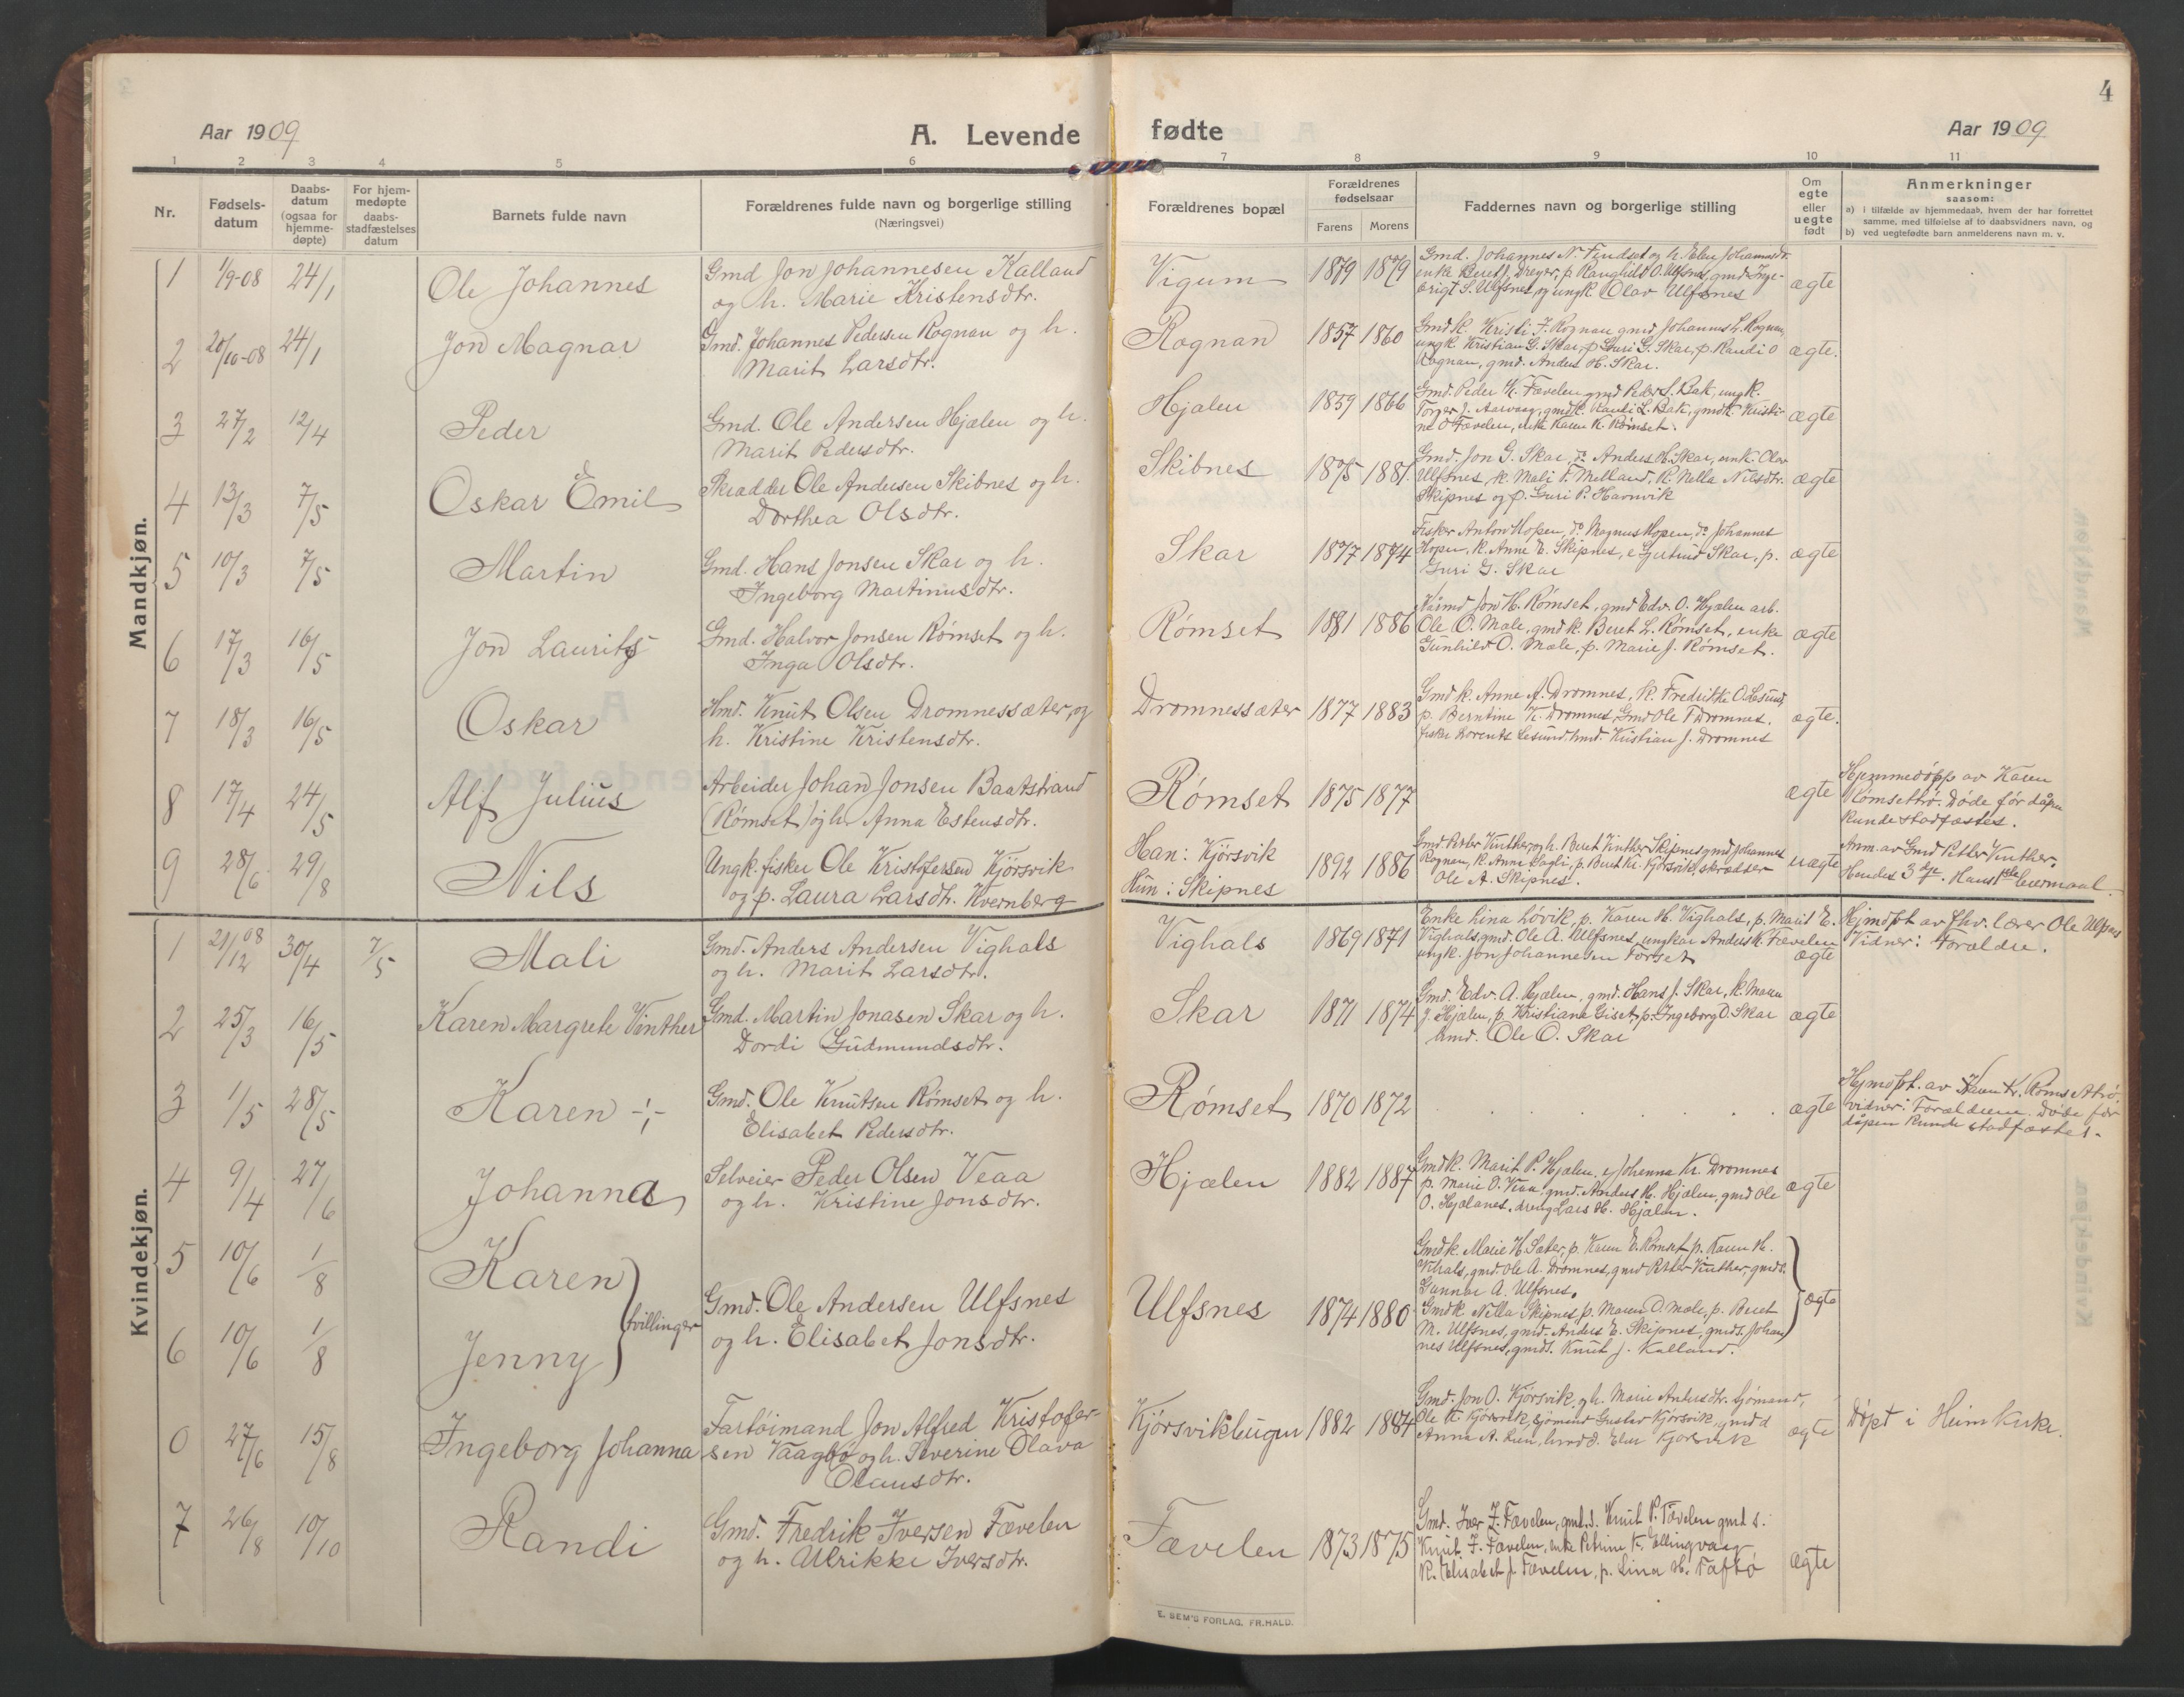 Aar 1909
A. Levende
fødte
Aar 1909
4
1 2 3 4 5 6 7 8 9 10 11
Nr.
Fødsels-
datum
Daabs-
datum
(ogsaa for
hjemme-
døpte)
For hjem-
medøpte
daabs-
stadfæstelses
datum
Barnets fulde navn
Forældrenes fulde navn og borgerlige stilling
(Næringsvei)
Forældrenes bopæl
Forældrenes
fødselsaar
Farens Morens
Faddernes navn og borgerlige stilling
Om
egte
eller
uegte
født
Anmerkninger
saasom:
a) i tilfælde av hjemmedaab, hvem der har forrettet
samme, med tilføielse af to daabsvidners navn, og
b) ved uegtefødte barn anmelderens navn m. v.
Mandkjøn.
1 1/9-08 24/1 Ole Johannes
Gmd Jon Johannesen Kalland
og h. Marie Kristensdtr.
Vigum 1879 1879
Gmd. Johannes N. Findset og h. Elen Johannesdtr.
enke Beret J. Dreyer, p. Ranghild O. Ulfsnes, gmd. Inge-
brigt S. Ulfsnes, og ungk. Olav Ulfsnes
ægte
2 20/10-08 24/1 Jon Magnar
Gmd. Johannes Pedersen Rognan og h.
Marit Larsdtr.
Rognan 1857 1860
Gmdk. Kristi J. Rognan gmd Johannes L. Rognan,
ungk. Kristian G. Skar, p. Guri G. Skar, p. Randi O
Rognan, gmd. Anders H. Skar.
ægte.
3 27/2 12/4 Peder
Gmd. Ole Andersen Hjælen og h.
Marit Pedersdtr.
Hjalen 1859 1866
Gmd. Peder K. Fævelen gmd Peder S. Bak, ungk.
Torger J. Aarvaag, gmdk. Randi L. Bak, gmdk. Kristi-
ne O Fævelen, enke Karen K. Rømset.
ægte
4 13/3 7/5 Oskar Emil
Skrædder Ole Andersen Skibnes og h.
Dorthea Olsdtr.
Skibnes 1875 1881.
Gmd. Jon G. Skar, do Anders H. Skar, unk. Olav
Ulfsnes, k. Mali F. Melland, k. Nella Nilsdtr.
Skipnes og p. Guri P. Havnvik
ægte
5 10/3 7/5 Martin
Gmd. Hans Jonsen Skar og h.
Ingeborg Martinusdtr.
Skar 1877 1874
Fisker Anton Hopen, do Magnus Hopen, do Johannes
Hopen, k. Anne E. Skipnes, e Gjertrud Skar, p.
Guri G. Skar
ægte
6 17/3 16/5 Jon Laurits
Gmd. Halvor Jonsen Rømset og h.
Inga Olsdtr.
Rømset 1881 1886
Kårmd Jon H. Rømset, gmd Edv. O. Hjælen arb.
Ole O. Mæle, gmdk. Beret L. Rømset, enke
Gunhild O. Mæle, p. Marie J. Rømset.
ægte
7 18/3 16/5 Oskar
Hmd. Knut Olsen Dromnessæter, og
h. Kristine Kristensdtr.
Dromnessæter 1877 1883
Gmdk. Anne A. Dromnes, k. Fredrikke O Lesund,
p. Berntine K. Dromnes, Gmd Ole T Dromnes.
fisker Lorents Lesund, hmd. Kristian J. Dromnes
ægte.
8 17/4 24/5 Alf Julius
Arbeider Johan Jonsen Baatstrand
(Rømset) og h. Anna Estensdtr.
Rømset 1875 1877
ægte
Hjemmedøpt av Karen
Rømsettrø. Døde før dåpen
kunde stadfæstes.
9 28/6 29/8 Nils
Ungk. fisker Ole Kristofersen Kjørsvik
og p. Laura Larsdtr. Kvernberg
Han: Kjørsvik
Hun: Skipnes
1892 1886
Gmd. Petter Vinther, og h. Beret Vinther Skipnes gmd Johannes
Rognan, k. Anne Sagli, p. Beret Kr. Kjørsvik, skrædder
Ole A. Skipnes.
uægte
Anm. av Gmd Petter Vinther.
Hendes 3die. Hans 1ste leiermaal.
Kvindekjøn.
1 21/12 08 30/4 7/5 Mali
Gmd. Anders Andersen Vighals
og h. Marit Larsdtr.
Vighals 1869 1871
Enke Lina Løvik, p. Karen H. Vighals, p. Marit E.
Vighals, gmd. Ole A. Ulfsnes, ungkar Anders K. Fævelen
ungk. Jon Johannesen Forset
ægte
Hjmdpt av fhv. lærer Ole Ulfsnes
Vidner: Forældre.
2 25/3 16/5 Karen Margrete Vinther
Gmd. Martin Jonasen Skar og h.
Dordi Gudmundsdtr.
Skar 1871 1874
Gmd. Edv. A. Hjælen, gmd. Hans J. Skar, k. Maren
J. Hjælen, p. Kristiane Giset, p. Ingeborg O. Skar
hmd. Ole O. Skar
ægte
3 1/5 28/5 Karen -:-
Gmd. Ole Knutsen Rømset og h.
Elisabet Pedersdtr.
Rømset 1870 1872
ægte
Hjmdpt. av Karen Kr. Rømsettrø,
vidner: Forældrene. Døde før
dåpen kunde stadfæstes.
4 9/4 27/6 Johanna
Selveier Peder Olsen Veaa
og h. Kristine Jonsdtr.
Hjælen 1882 1887
Gmdk. Marit P. Hjælen, e Johanna Kr. Dromnes
p. Marie O. Veaa, gmd. Anders H. Hjælen, gmd Ole
O. Hjælanes, dreng Lars H. Hjælen.
ægte
5 10/6 1/8 Karen
6 10/6 1/8 Jenny
tvillinger
Gmd. Ole Andersen Ulfsnes
og h. Elisabet Jonsdtr.
Ulfsnes 1874 1880
Gmdk. Marie H. Sæter, p. Karen E. Rømset, p. Karen H.
Vihals, gmd. Ole A. Dromnes, gmd Petter Vinther, gmds.
Gunnar A. Ulfsnes.
Gmdk. Nella Skipnes, p. Maren O. Mæle, p. Beret
M. Ulfsnes, gmd. Anders E. Skipnes, gmds. Johan-
nes Ulfsnes, gmds. Knut J. Kalland.
ægte
0 27/6 15/8 Ingeborg Johanna
Fartøimand Jon Alfred Kristofer-
sen Vaagbø og h. Severine Olava
Olausdtr.
Kjørsvikbugen 1882 1884
Gmd. Jon O. Kjørsvik, og h. Marie Andersdtr. sjømand,
Ole K. Kjørsvik, sjømand Gustav Kjørsvik, gmdd
Anna A. Lien, hmdd. Elen Kjørsvik
ægte
Døpt i Heim kirke.
7 26/8 10/10 Randi
Gmd. Fredrik Iversen Fævelen
og h. Ulrikke Iversdtr.
Fævelen 1873 1875
Gmd. Iver F. Fævelen, gmd.s. Knut P. Fævelen gmd s.
Knut F. Fævelen, enke Petrine K. Ellingvaag
k. Elisabet J. Fævelen, p. Lina H. Taftø
ægte
E. SEM'S FORLAG. FR.HALD.